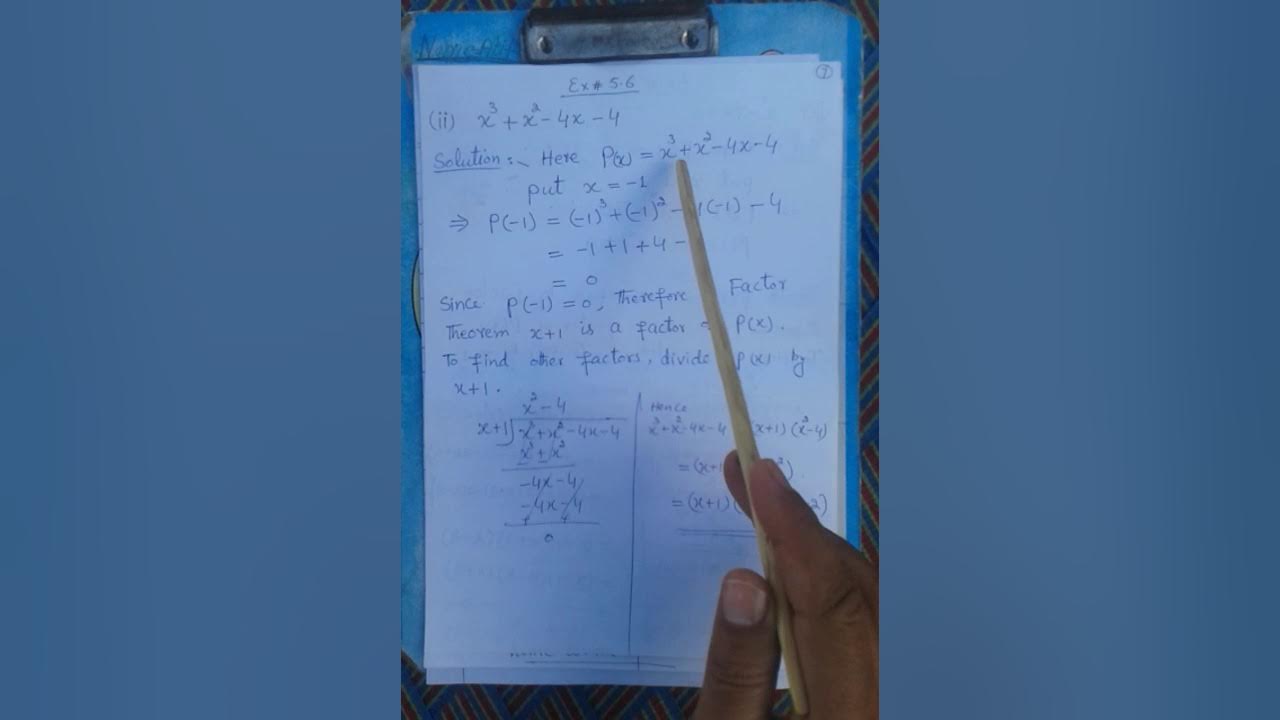 7
Ex# 5.6
(ii) x³ + x² - 4x - 4
Solution:- Here P(x) = x³ + x² - 4x - 4
put x = -1
⇒ P(-1) = (-1)³ + (-1)² - (-1) - 4
= -1 + 1 + 4 -
= 0
Since P(-1) = 0, Therefore Factor
Theorem x+1 is a factor P(x).
To find other factors, divide P(x) by
x+1.
x² - 4
x+1 x³ + x² - 4x - 4
x³ + x²
-4x - 4
-4x - 4
0
Hence
x³ + x² - 4x - 4 (x+1) (x² - 4)
= (x+1 ²)
= (x+1) ( 2)